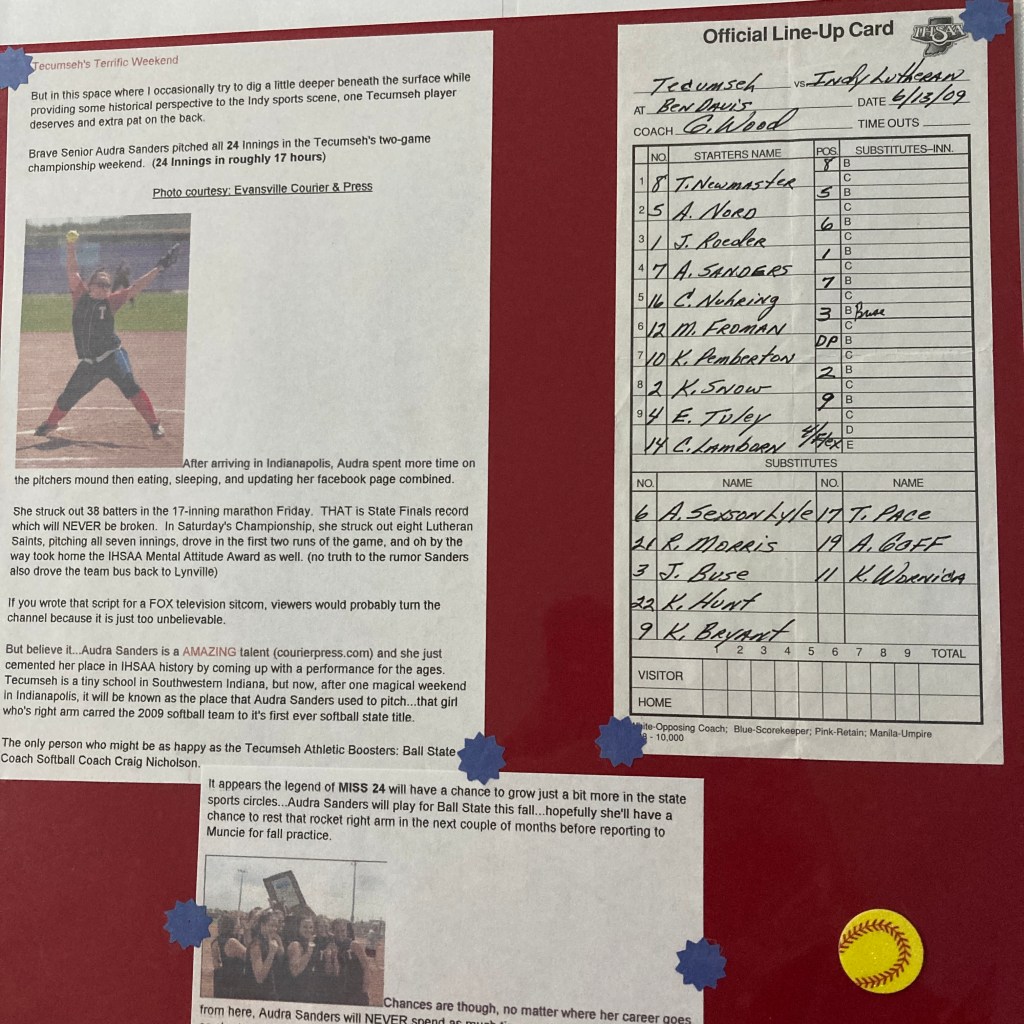 Tecumseh's Terrific Weekend
But in this space where I occasionally try to dig a little deeper beneath the surface while
providing some historical perspective to the Indy sports scene, one Tecumseh player
deserves and extra pat on the back.
Brave Senior Audra Sanders pitched all 24 Innings in the Tecumseh's two-game
championship weekend. (24 Innings in roughly 17 hours)
Photo courtesy: Evansville Courier & Press
T
After arriving in Indianapolis, Audra spent more time on
the pitchers mound then eating, sleeping, and updating her facebook page combined.
She struck out 38 batters in the 17-inning marathon Friday. THAT is State Finals record
which will NEVER be broken. In Saturday's Championship, she struck out eight Lutheran
Saints, pitching all seven innings, drove in the first two runs of the game, and oh by the
way took home the IHSAA Mental Attitude Award as well. (no truth to the rumor Sanders
also drove the team bus back to Lynville)
If you wrote that script for a FOX television sitcom, viewers would probably turn the
channel because it is just too unbelievable.
But believe it...Audra Sanders is a AMAZING talent (courierpress.com) and she just
cemented her place in IHSAA history by coming up with a performance for the ages.
Tecumseh is a tiny school in Southwestern Indiana, but now, after one magical weekend
in Indianapolis, it will be known as the place that Audra Sanders used to pitch...that girl
who's right arm carred the 2009 softball team to it's first ever softball state title.
The only person who might be as happy as the Tecumseh Athletic Boosters: Ball State
Coach Softball Coach Craig Nicholson.
It appears the legend of MISS 24 will have a chance to grow just a bit more in the state
sports circles...Audra Sanders will play for Ball State this fall...hopefully she'll have a
chance to rest that rocket right arm in the next couple of months before reporting to
Muncie for fall practice.
Chances are though, no matter where her career goes
from here, Audra Sanders will NEVER spend as much
Official Line-Up Card
IHSAA
Tecumseh VS Indy Lutheran
AT Ben Davis DATE 6/13/09
COACH G. Wood TIME OUTS
NO. STARTERS NAME POS. SUBSTITUTES–INN.
1 8 T. Newmaster 8 B C
2 5 A. Nord 5 B C
3 1 J. Roeder 6 B C
4 7 A. Sanders 1 B C
5 16 C. Nuhring 7 B C
6 12 M. Froman 3 B Buse C
7 10 K. Pemberton DP B C
8 2 K. Snow 2 B C
9 4 E. Tuley 9 B C
14 C. Lamborn 4/Flex D E
SUBSTITUTES
NO. NAME NO. NAME
6 A. Sexson Lyle 17 T. Pace
21 R. Morris 19 A. Goff
3 J. Buse 11 K.
22 K. Hunt
9 K. Bryant
2 3 4 5 6 7 8 9 TOTAL
VISITOR
HOME
White-Opposing Coach; Blue-Scorekeeper; Pink-Retain; Manila-Umpire
- 10,000